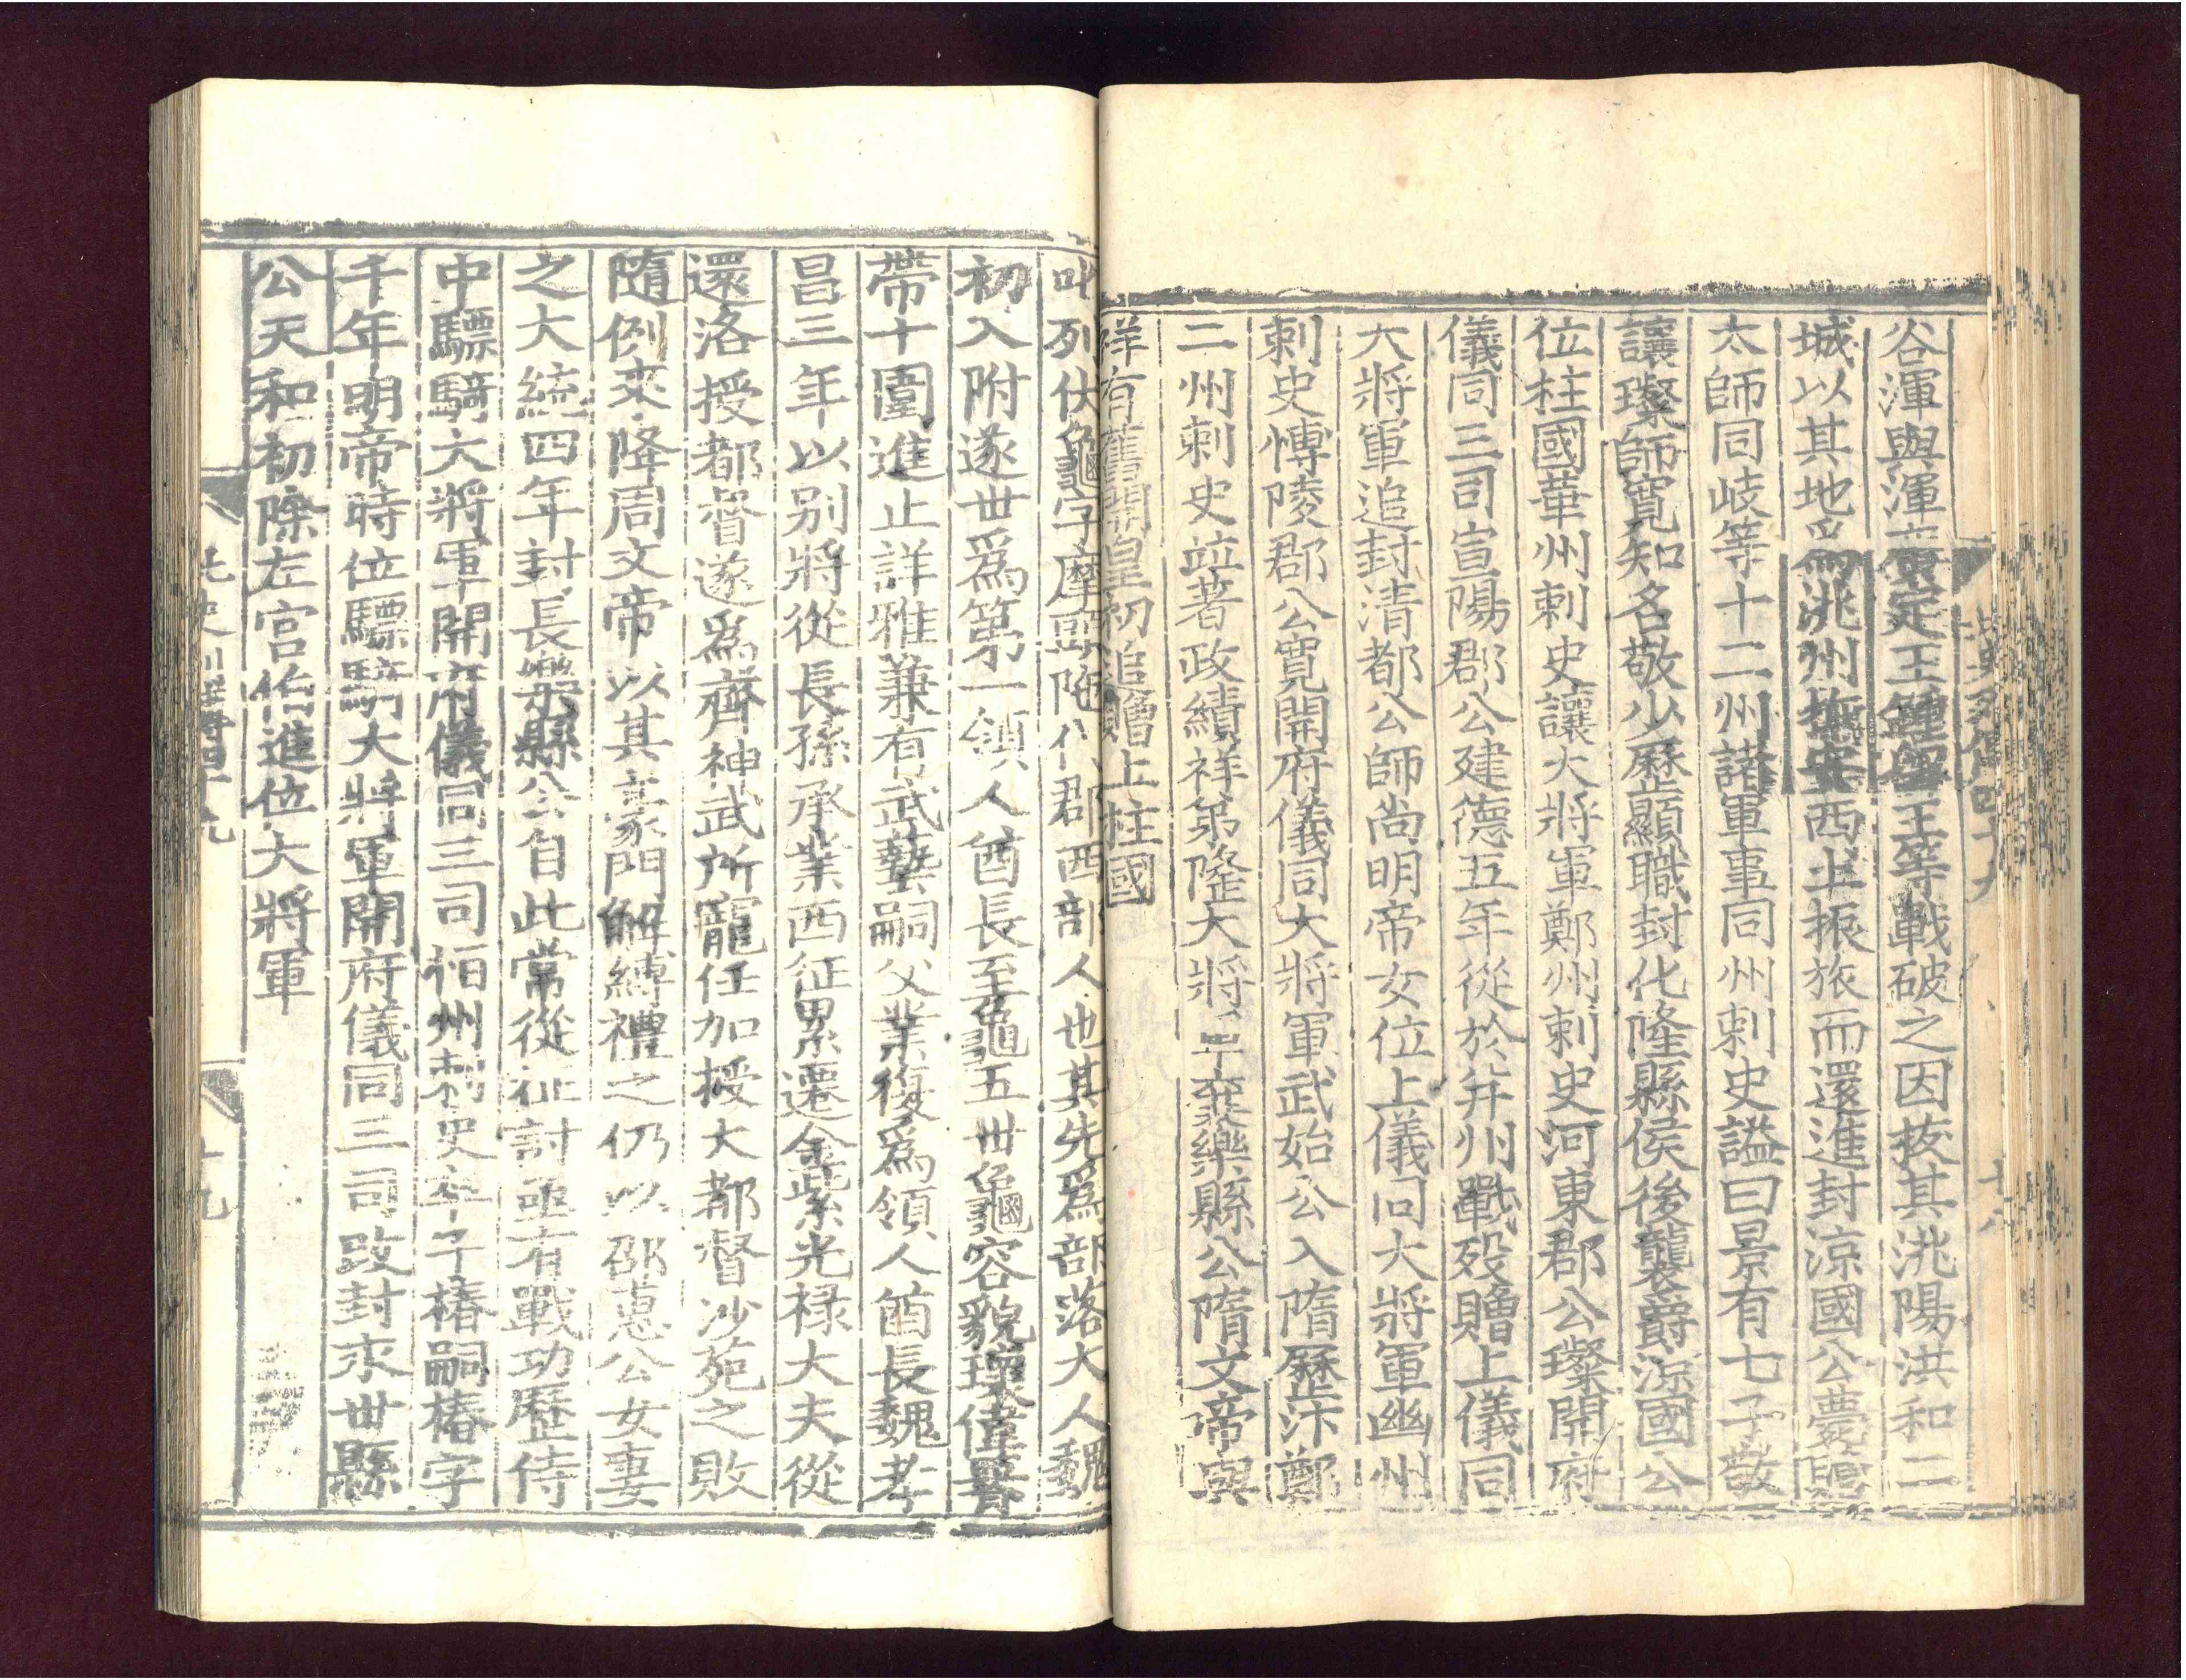 谷渾與渾定王鍾留王等戰破之因拔其洮陽洪和二
城以其地爲洮州撫安西土振旅而還進封涼國公薨贈
太師同岐等十二州諸軍事同州刺史謚曰景有七子敬
讓璨師寬知名敬少歷顯職封化隆縣侯後襲爵涼國公
位柱國華州刺史讓大將軍鄭州刺史河東郡公璨開府
儀同三司宣陽郡公建德五年從於并州戰歿贈上儀同
大將軍追封清都公師尚明帝女位上儀同大將軍幽州
刺史博陵郡公寬開府儀同大將軍武始公入隋歷汴鄭
二州刺史竝著政績祥弟隆大將軍襄樂縣公隋文帝與
祥有舊開皇初追贈上柱國
叱列伏龜字摩頭陁代郡西部人也其先爲部落大人魏
初入附遂世爲第一領人酋長至龜五世龜容貌瓌偉腰
帶十圍進止詳雅兼有武藝嗣父業復爲領人酋長魏孝
昌三年以别將從長孫承業西征累遷金紫光祿大夫從
還洛授都督遂爲齊神武所寵任加授大都督沙苑之敗
隨例來降周文帝以其豪門解縛禮之仍以邵惠公女妻
之大統四年封長樂縣公自此常從征討亟有戰功歷侍
中驃騎大將軍開府儀同三司恒州刺史卒子椿嗣椿字
千年明帝時位驃騎大將軍開府儀同三司改封永世縣
公天和初除左宫伯進位大將軍